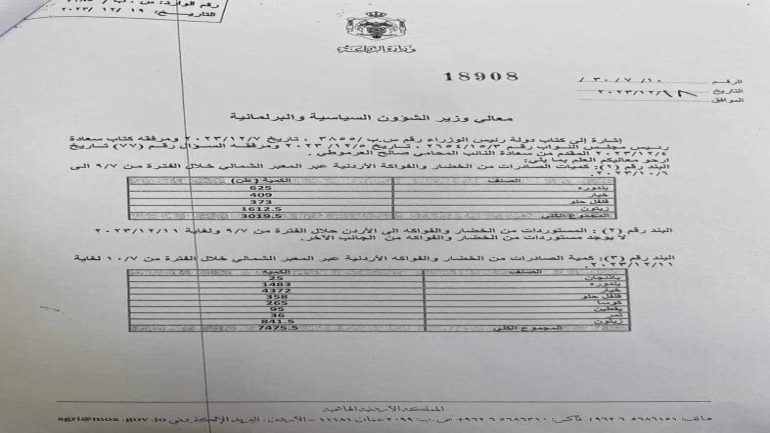 رقم الوارد: س . ب /
التاريخ: ١٩ / ١٢ / ٢٠٢٣
وزارة الزراعة
18908
الرقم ١٠ / ٧ / ٣٠ /
التاريخ ١٨ / ١٢ / ٢٠٢٣
الموافق
معالي وزير الشؤون السياسية والبرلمانية
إشارة إلى كتاب دولة رئيس الوزراء رقم س.ب /٣٨٥٥ ، تاريخ ٢٠٢٣/١٢/٧ ومرفقه كتاب سعادة
رئيس مجلس النواب رقم ٢٦٥٤/١٥/٣ ، تاريخ ١٢/٥/ ٢٠٢٣ ومرفقه السؤال رقم (٧٧) تاريخ
٢٠٢٣/١٢/٤ المقدم من سعادة النائب المحامي صالح العرموطي .
ارجو معاليكم العلم بما يلي:
البند رقم (١): كميات الصادرات من الخضار والفواكة الأردنية عبر المعبر الشمالي خلال الفترة من ٩/٧ الى
٢٠٢٣/١٠/٩.
الصنف الكمية (طن)
بندوره 625
خيار 409
فلفل حلو 373
زيتون 1612.5
المجموع الكلي 3019.5
البند رقم (٢) : المستوردات من الخضار والفواكه الى الأردن خلال الفترة من ٩/٧ ولغاية ٢٠٢٣/١٢/١١
لا يوجد مستوردات من الخضار والفواكه من الجانب الآخر.
البند رقم (٣): كمية الصادرات من الخضار والفواكه الأردنية عبر المعبر الشمالي خلال الفترة من ١٠/٧ لغاية
٢٠٢٣/١٢/١١.
الصنف الكمية
باذنجان 25
بندوره 1483
خيار 4372
فلفل حلو 358
كوسا 265
يقطين 95
تمر 36
زيتون 841.5
المجموع الكلي 7475.5
المملكة الأردنية الهاشمية
هاتف: ٥٦٨٦١٥١ ٦ ٩٦٢+ فاكس: ٥٦٨٦٣١٠ ٦ ٩٦٢+ ص.ب: ٢٠٩٩ عمان ١١١٨١ – الأردن. البريد الإلكتروني agri@moa.gov.jo